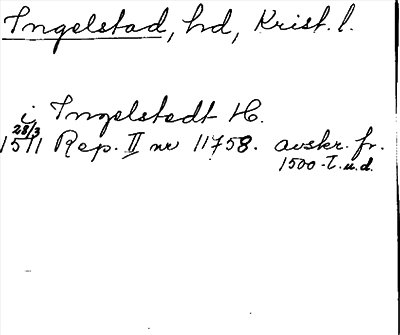 Ingelstad, hd, Krist. l.
i Ingelstedt H.
28/3
1511 Rep. II nr 11758. avskr. fr.
1500-t. u.d.